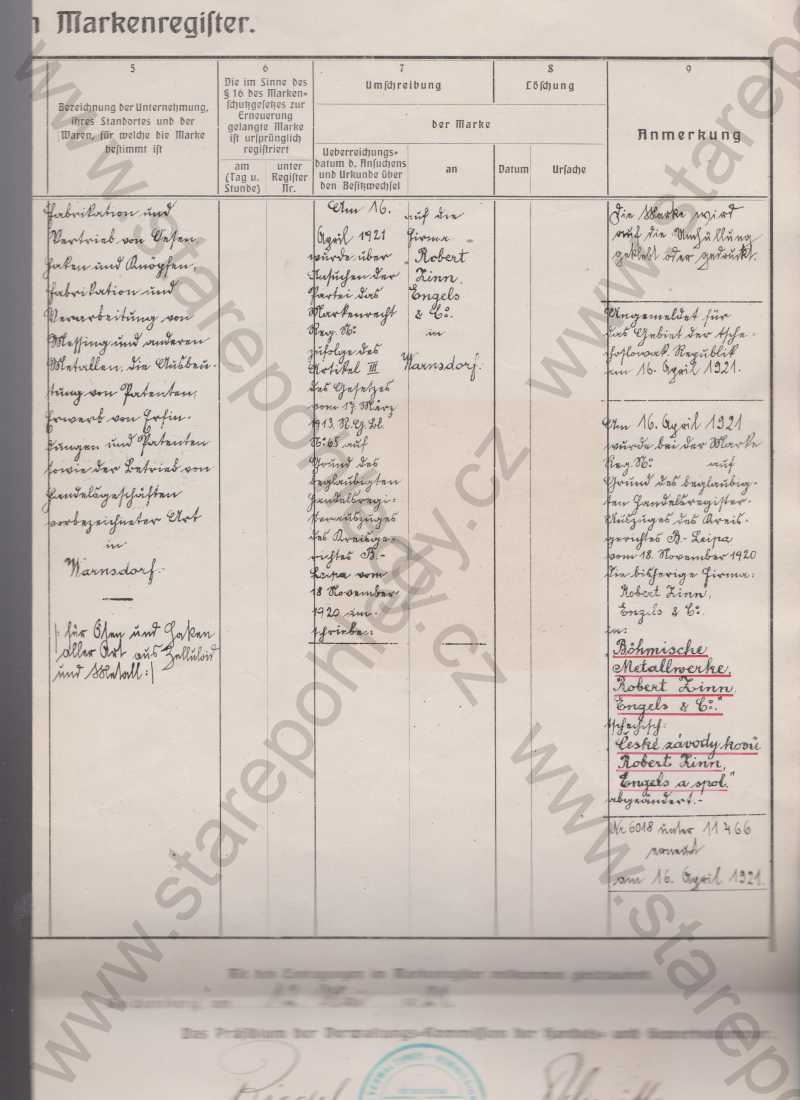 Markenregister.
5
Bezeichnung der Unternehmung,
ihres Standortes und der
Waren, für welche die Marke
bestimmt ist
6
Die im Sinne des
§ 16 des Marken-
schutzgesetzes zur
Erneuerung
gelangte Marke
ist ursprünglich
registriert
am
(Tag u.
Stunde)
unter
Register
Nr.
7
Umschreibung
8
Löschung
der Marke
Ueberreichungs-
datum d. Ansuchens
und Urkunde über
den Besitzwechsel
an
Datum
Ursache
9
Anmerkung
Fabrikation und
Vertrieb von Oesen,
Haken und Knöpfen,
Fabrikation und
Verarbeitung von
Messing und anderen
Metallen, die Ausbeu-
tung von Patenten,
Erwerb von Erfin-
dungen und Patenten
sowie der Betrieb von
Handelsgeschäften
vorbezeichneter Art
in
Warnsdorf.
|: für Ösen und Haken
aller Art aus Zelluloid
und Metall :|
Am 16.
April 1921
wurde über
Ansuchen der
Partei das
Markenrecht
Reg. No:
zufolge des
Artikel III
des Gesetzes
vom 17. März
1913. R. G. Bl.
No: 65 auf
Grund des
beglaubigten
Handelsregi-
sterauszuges
des Kreisge-
richtes B.-
Leipa vom
18 November
1920 um-
schrieben:
auf die
Firma
„Robert
Zinn,
Engels
& Co.
in
Warnsdorf.
Die Marke wird
auf die Umhüllung
geklebt oder gedruckt.
Angemeldet für
das Gebiet der tsche-
choslowak. Republik
am 16. April 1921.
Am 16. April 1921
wurde bei der Marke
Reg. No: auf
Grund des beglaubig-
ten Handelsregister-
Auszuges des Kreis-
gerichtes B.-Leipa
vom 18. November 1920
die bisherige Firma:
Robert Zinn,
Engels & Co.
in:
„Böhmische
Metallwerke,
Robert Zinn,
Engels & Co."
tschechisch:
„České závody kovů
Robert Zinn,
Engels a spol."
abgeändert.-
Nr 6018 unter 11466
erneut
am 16. April 1921.
Das Präsidium der Verwaltungs-Kommission der Handels- und
www.starepohledy.cz
www.starepohledy.cz
www.starepohledy.cz
www.starepohledy.cz